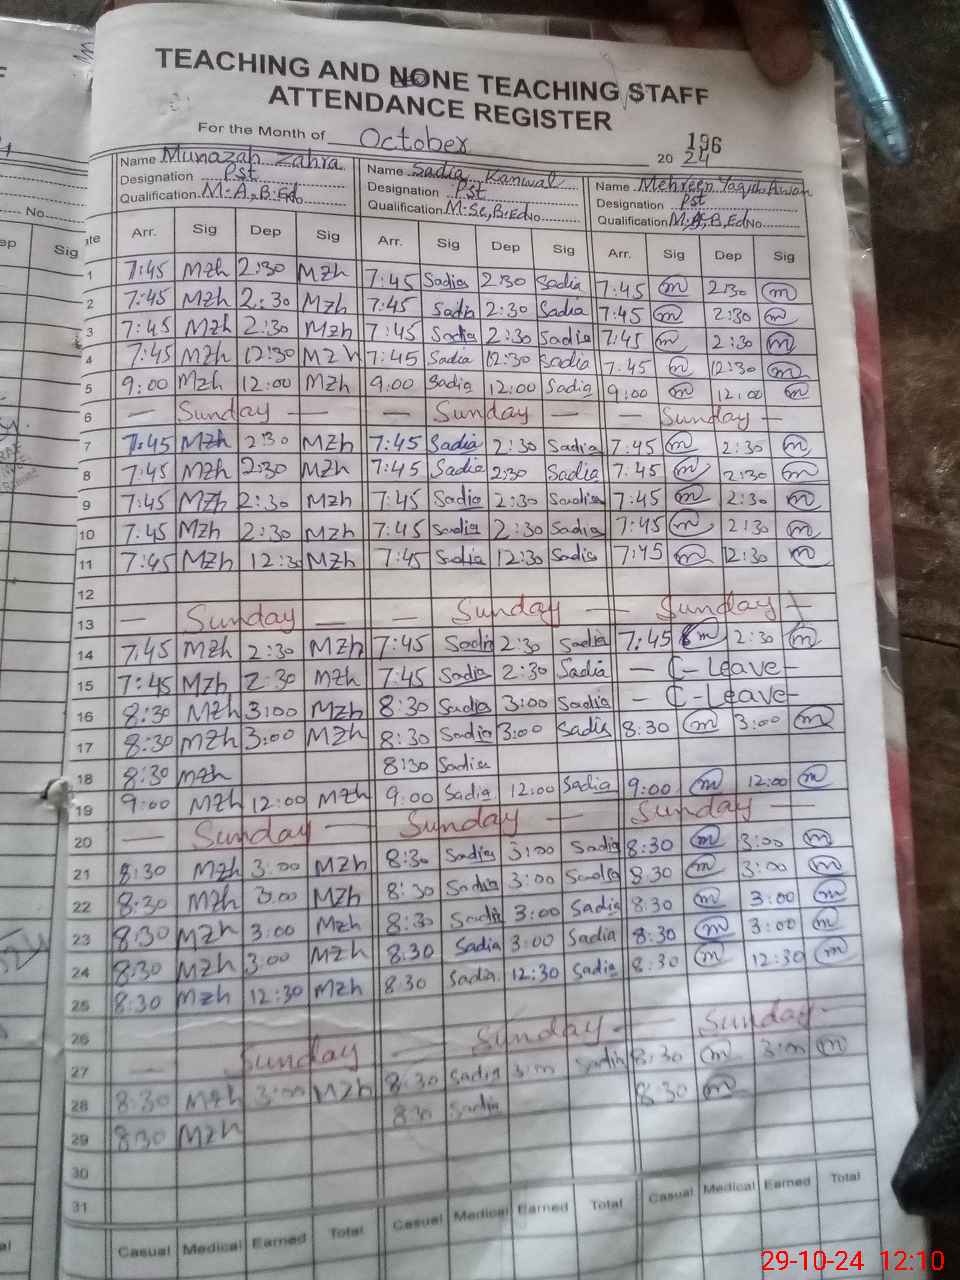 TEACHING AND NONE TEACHING STAFF
ATTENDANCE REGISTER
196
For the Month of October 20 24
Name Munazah Zahra Name Sadia Kanwal Name Mehreen
Designation Pst Designation Pst Designation Pst
Qualification M.A, B.Ed No. Qualification M.Sc, B.Ed No Qualification M.A, B.Ed No
Arr. Sig Dep Sig Arr. Sig Dep Sig Arr. Sig Dep Sig
1 7:45 Mzh 2:30 Mzh 7:45 Sadia 2:30 Sadia 7:45 m 2:30 m
2 7:45 Mzh 2:30 Mzh 7:45 Sadia 2:30 Sadia 7:45 m 2:30 m
3 7:45 Mzh 2:30 Mzh 7:45 Sadia 2:30 Sadia 7:45 m 2:30 m
4 7:45 Mzh 12:30 Mzh 7:45 Sadia 12:30 Sadia 7:45 m 12:30 m
5 9:00 Mzh 12:00 Mzh 9:00 Sadia 12:00 Sadia 9:00 m 12:00 m
6 — Sunday — — Sunday — — Sunday —
7 7:45 Mzh 2:30 Mzh 7:45 Sadia 2:30 Sadia 7:45 m 2:30 m
8 7:45 Mzh 2:30 Mzh 7:45 Sadia 2:30 Sadia 7:45 m 2:30 m
9 7:45 Mzh 2:30 Mzh 7:45 Sadia 2:30 Sadia 7:45 m 2:30 m
10 7:45 Mzh 2:30 Mzh 7:45 Sadia 2:30 Sadia 7:45 m 2:30 m
11 7:45 Mzh 12:30 Mzh 7:45 Sadia 12:30 Sadia 7:45 m 12:30 m
12
13 — Sunday — — Sunday — Sunday —
14 7:45 Mzh 2:30 Mzh 7:45 Sadia 2:30 Sadia 7:45 m 2:30 m
15 7:45 Mzh 2:30 Mzh 7:45 Sadia 2:30 Sadia — C-Leave —
16 8:30 Mzh 3:00 Mzh 8:30 Sadia 3:00 Sadia — C-Leave —
17 8:30 Mzh 3:00 Mzh 8:30 Sadia 3:00 Sadia 8:30 m 3:00 m
18 8:30 Mzh 8:30 Sadia
19 9:00 Mzh 12:00 Mzh 9:00 Sadia 12:00 Sadia 9:00 m 12:00 m
20 — Sunday — Sunday — Sunday —
21 8:30 Mzh 3:00 Mzh 8:30 Sadia 3:00 Sadia 8:30 m 3:00 m
22 8:30 Mzh 3:00 Mzh 8:30 Sadia 3:00 Sadia 8:30 m 3:00 m
23 8:30 Mzh 3:00 Mzh 8:30 Sadia 3:00 Sadia 8:30 m 3:00 m
24 8:30 Mzh 3:00 Mzh 8:30 Sadia 3:00 Sadia 8:30 m 3:00 m
25 8:30 Mzh 12:30 Mzh 8:30 Sadia 12:30 Sadia 8:30 m 12:30 m
26
27 — Sunday — Sunday — Sunday -
28 8:30 Mzh 3:00 Mzh 8:30 Sadia 3:00 Sadia 8:30 m 3:00 m
29 8:30 Mzh 8:30 Sadia 8:30 m
30
31
Casual Medical Earned Total Casual Medical Earned Total Casual Medical Earned Total
29-10-24 12:10